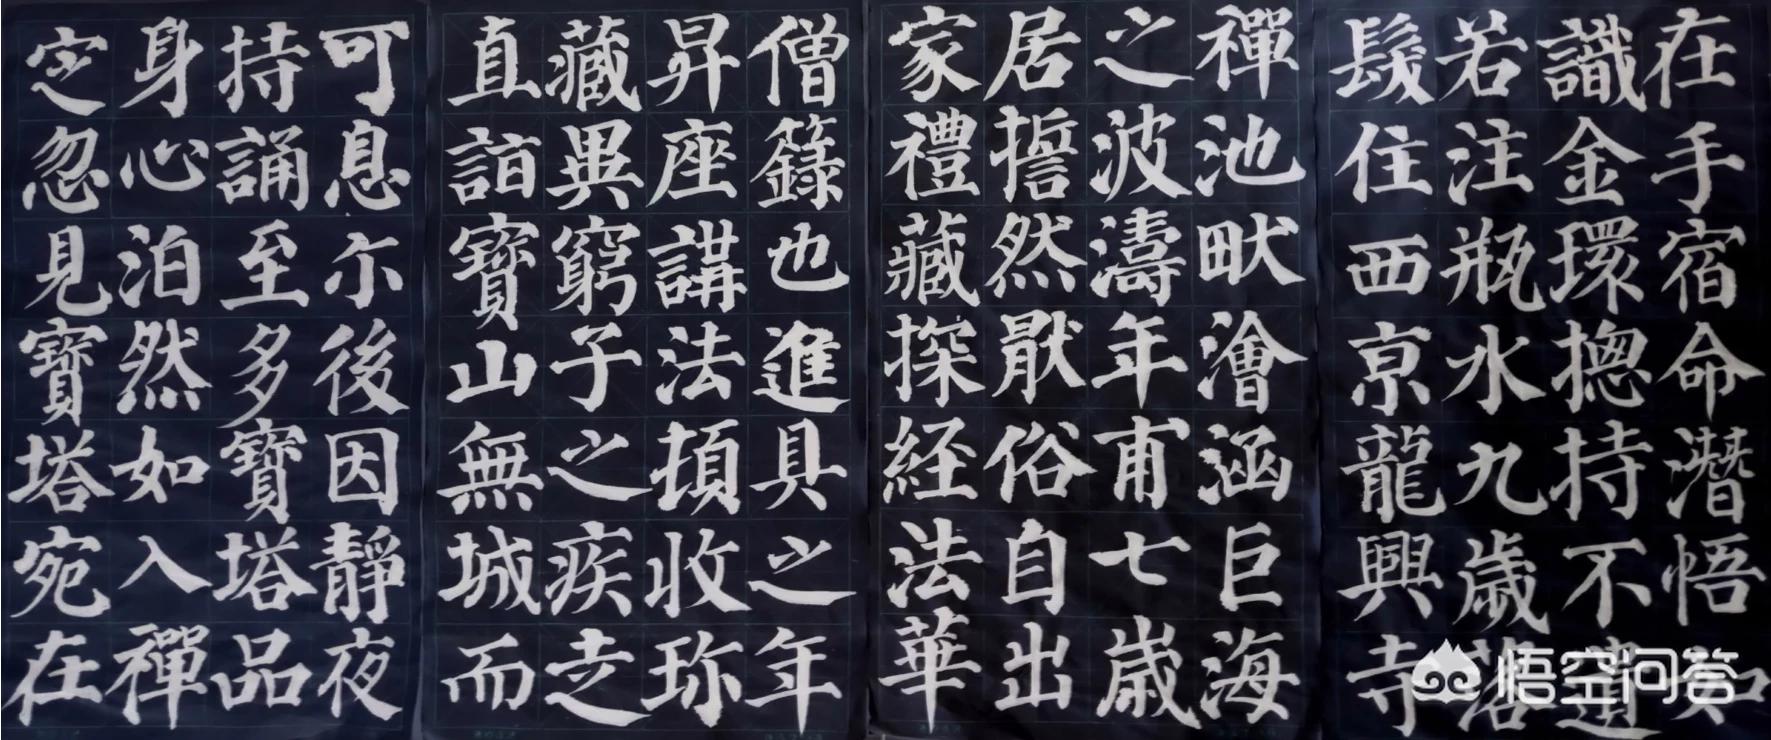 在手宿命潜悟如
識金環揔持不遺
若注瓶水九歲落
髮住西京龍興寺
禪池畎澮涵巨海
之波濤年甫七歲
居誓然厭俗自出
家禮藏探経法華
僧籙也進具之年
昇座講法頓收珎
藏異窮子之疾走
直詣寶山無城而
可息尒後因靜夜
持誦至多寶塔品
身心泊然如入禪
定忽見寶塔宛在
悟空问答